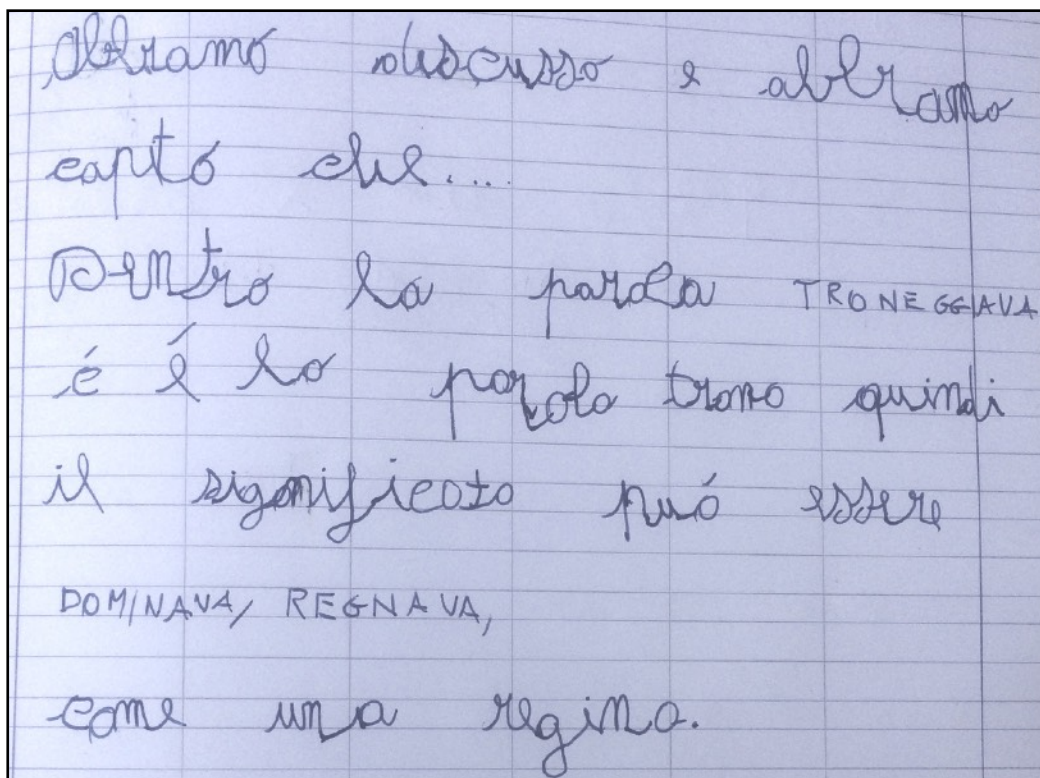 Abbiamo discusso e abbiamo
capito che....
Dentro la parola TRONEGGIAVA
é é la parola trono quindi
il significato puó essere
DOMINAVA, REGNAVA,
come una regina.